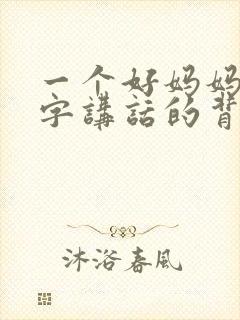 一个好妈妈
字講話的背
沐浴春風